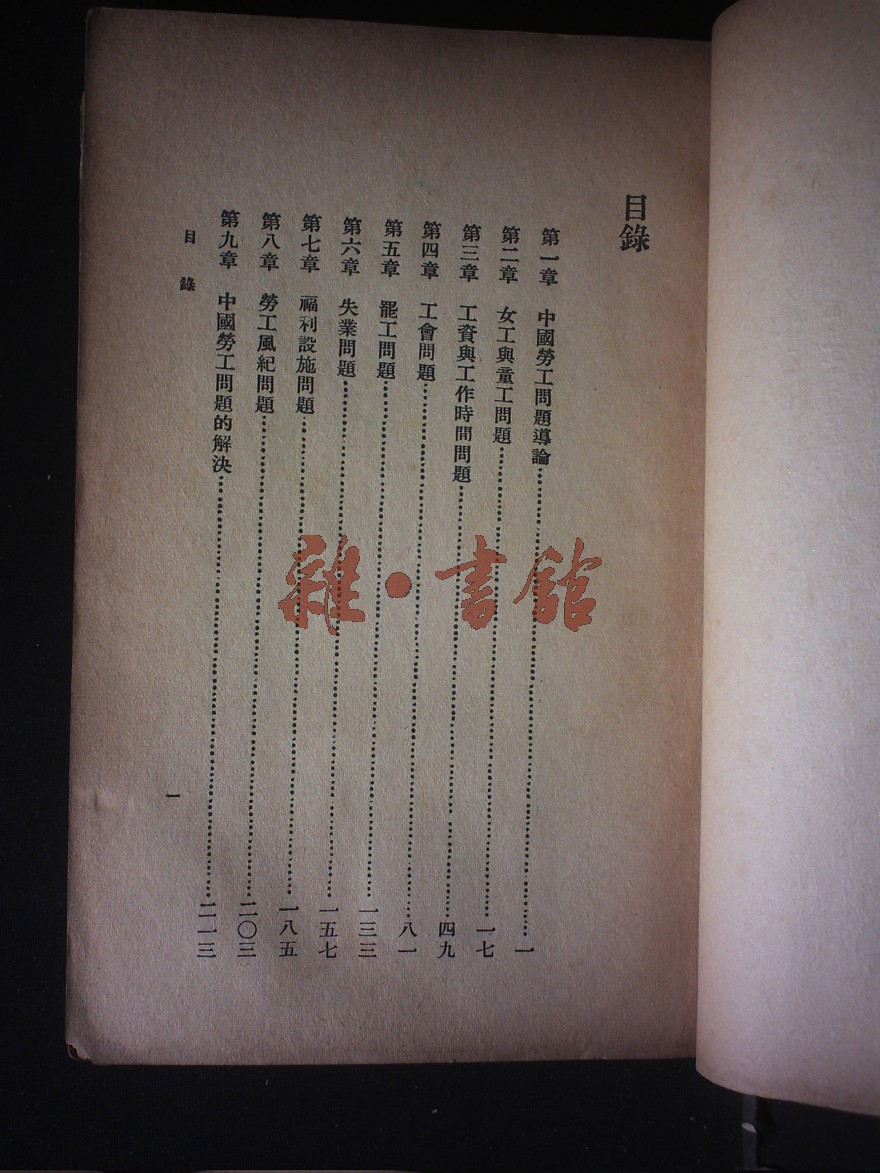 目錄
第一章 中國勞工問題導論…………一
第二章 女工與童工問題…………一七
第三章 工資與工作時間問題…………四九
第四章 工會問題…………八一
第五章 罷工問題…………一三三
第六章 失業問題…………一五七
第七章 福利設施問題…………一八五
第八章 勞工風紀問題…………二〇三
第九章 中國勞工問題的解決…………二一三
目錄
一
雜·書館